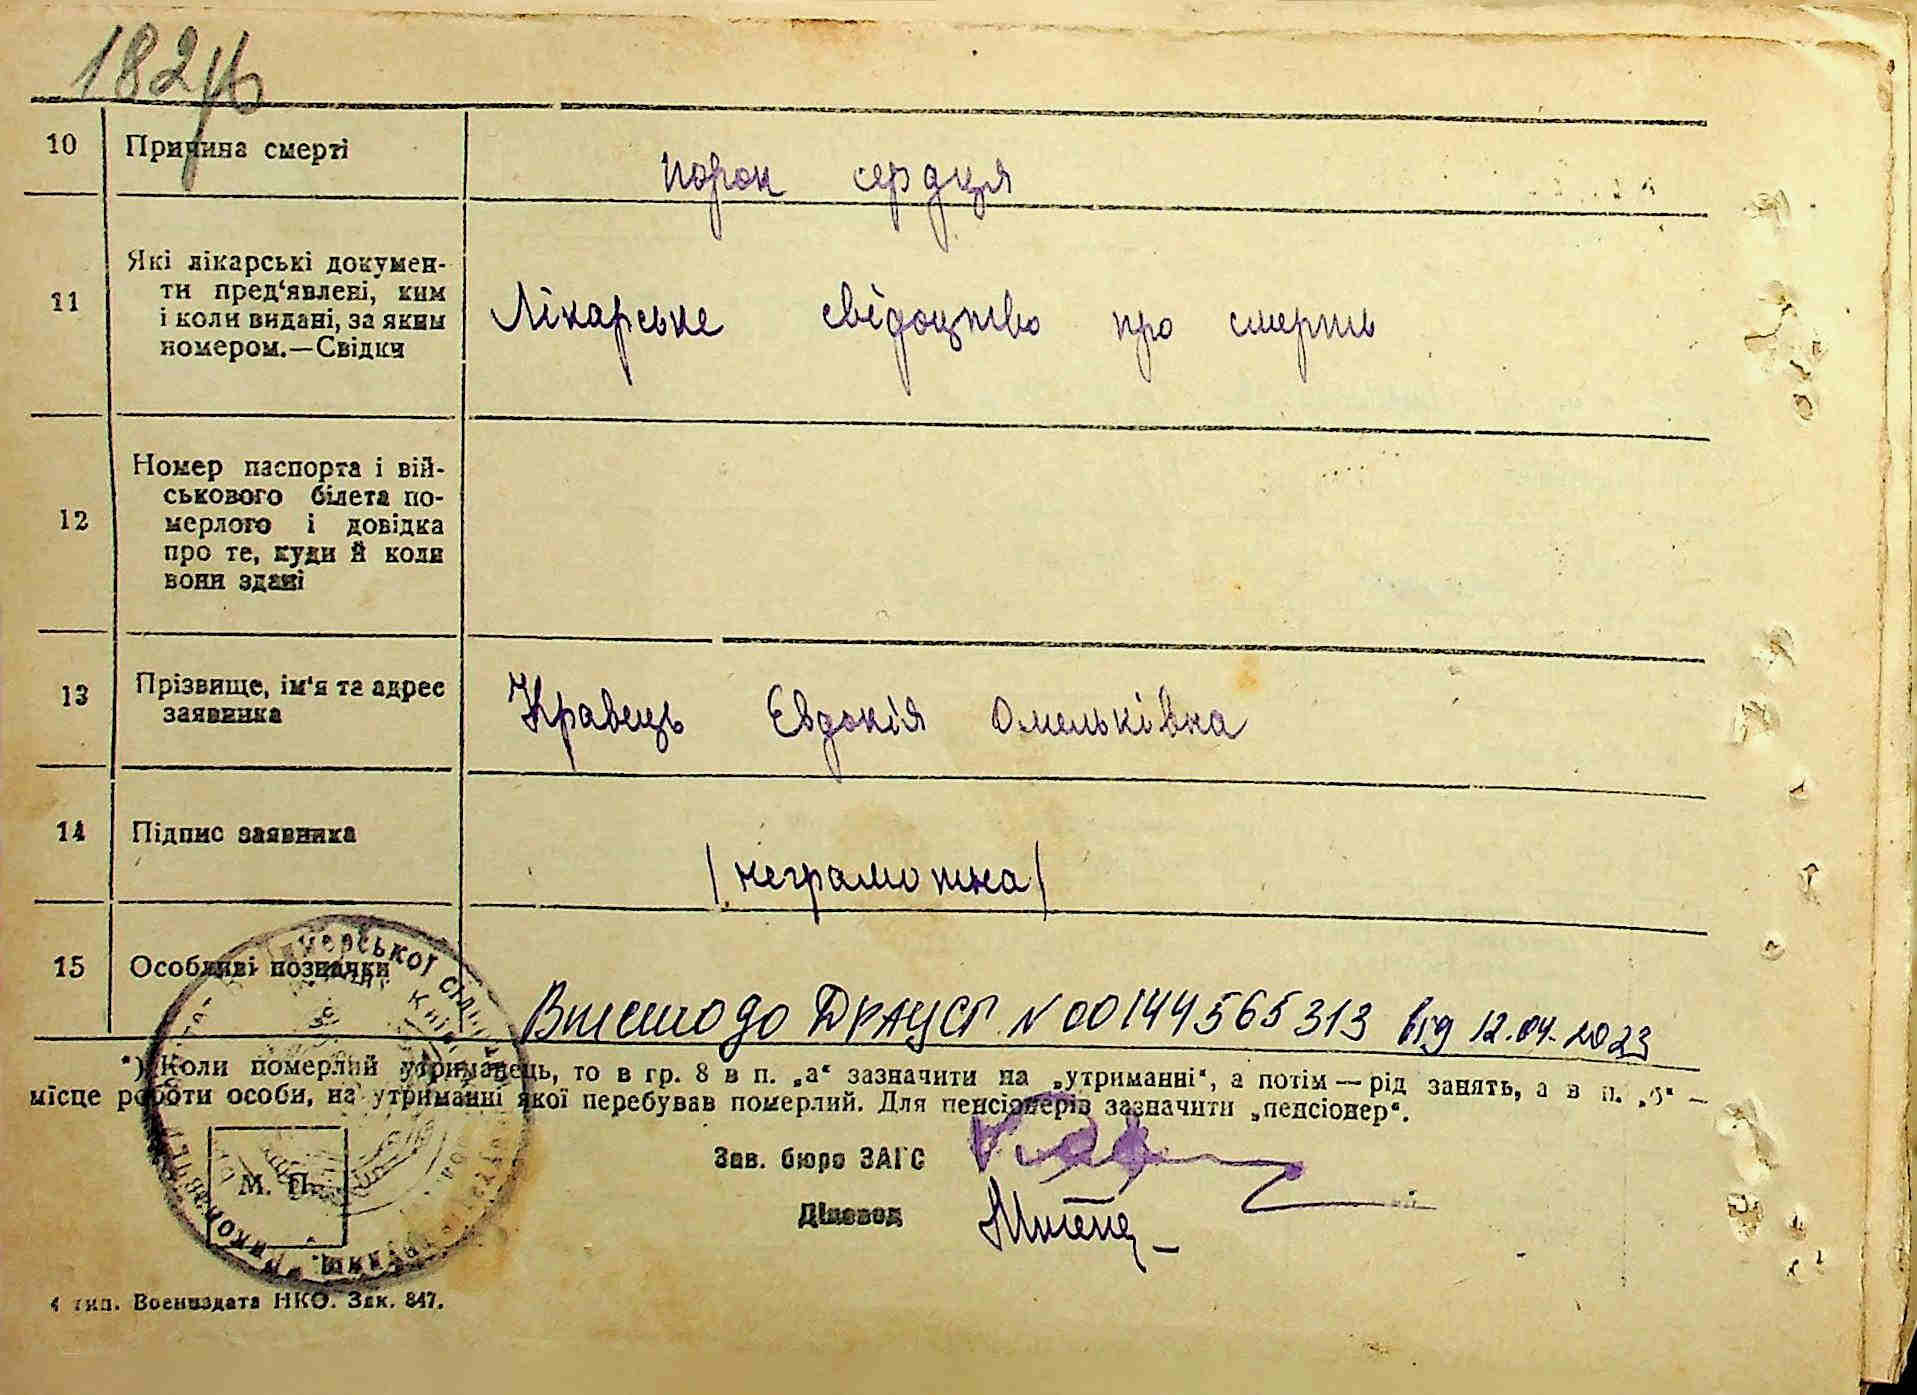 182
10 Причина смерті порок сердця
11 Які лікарські докумен-
ти пред'явлені, ким
і коли видані, за яким
номером.—Свідки
Лікарське свідоцтво про смерть
12 Номер паспорта і вій-
ськового білета по-
мерлого і довідка
про те, куди й коли
вони здані
13 Прізвище, ім'я та адрес
заявника
Кравець Евдокія Омельківна
14 Підпис заявника
/неграмотна/
15 Особливі позначки
до ДРАЦСГ N 00144565313 від 12.04.2023
*) Коли померлий утриманець, то в гр. 8 в п. „а“ зазначити на „утриманні“, а потім — рід занять, а в п. „б“ —
місце роботи особи, на утриманні якої перебував померлий. Для пенсіонерів зазначити „пенсіонер“.
Зав. бюро ЗАГС
Діловод
М. П.
4 тип. Воениздата НКО. Зак. 847.